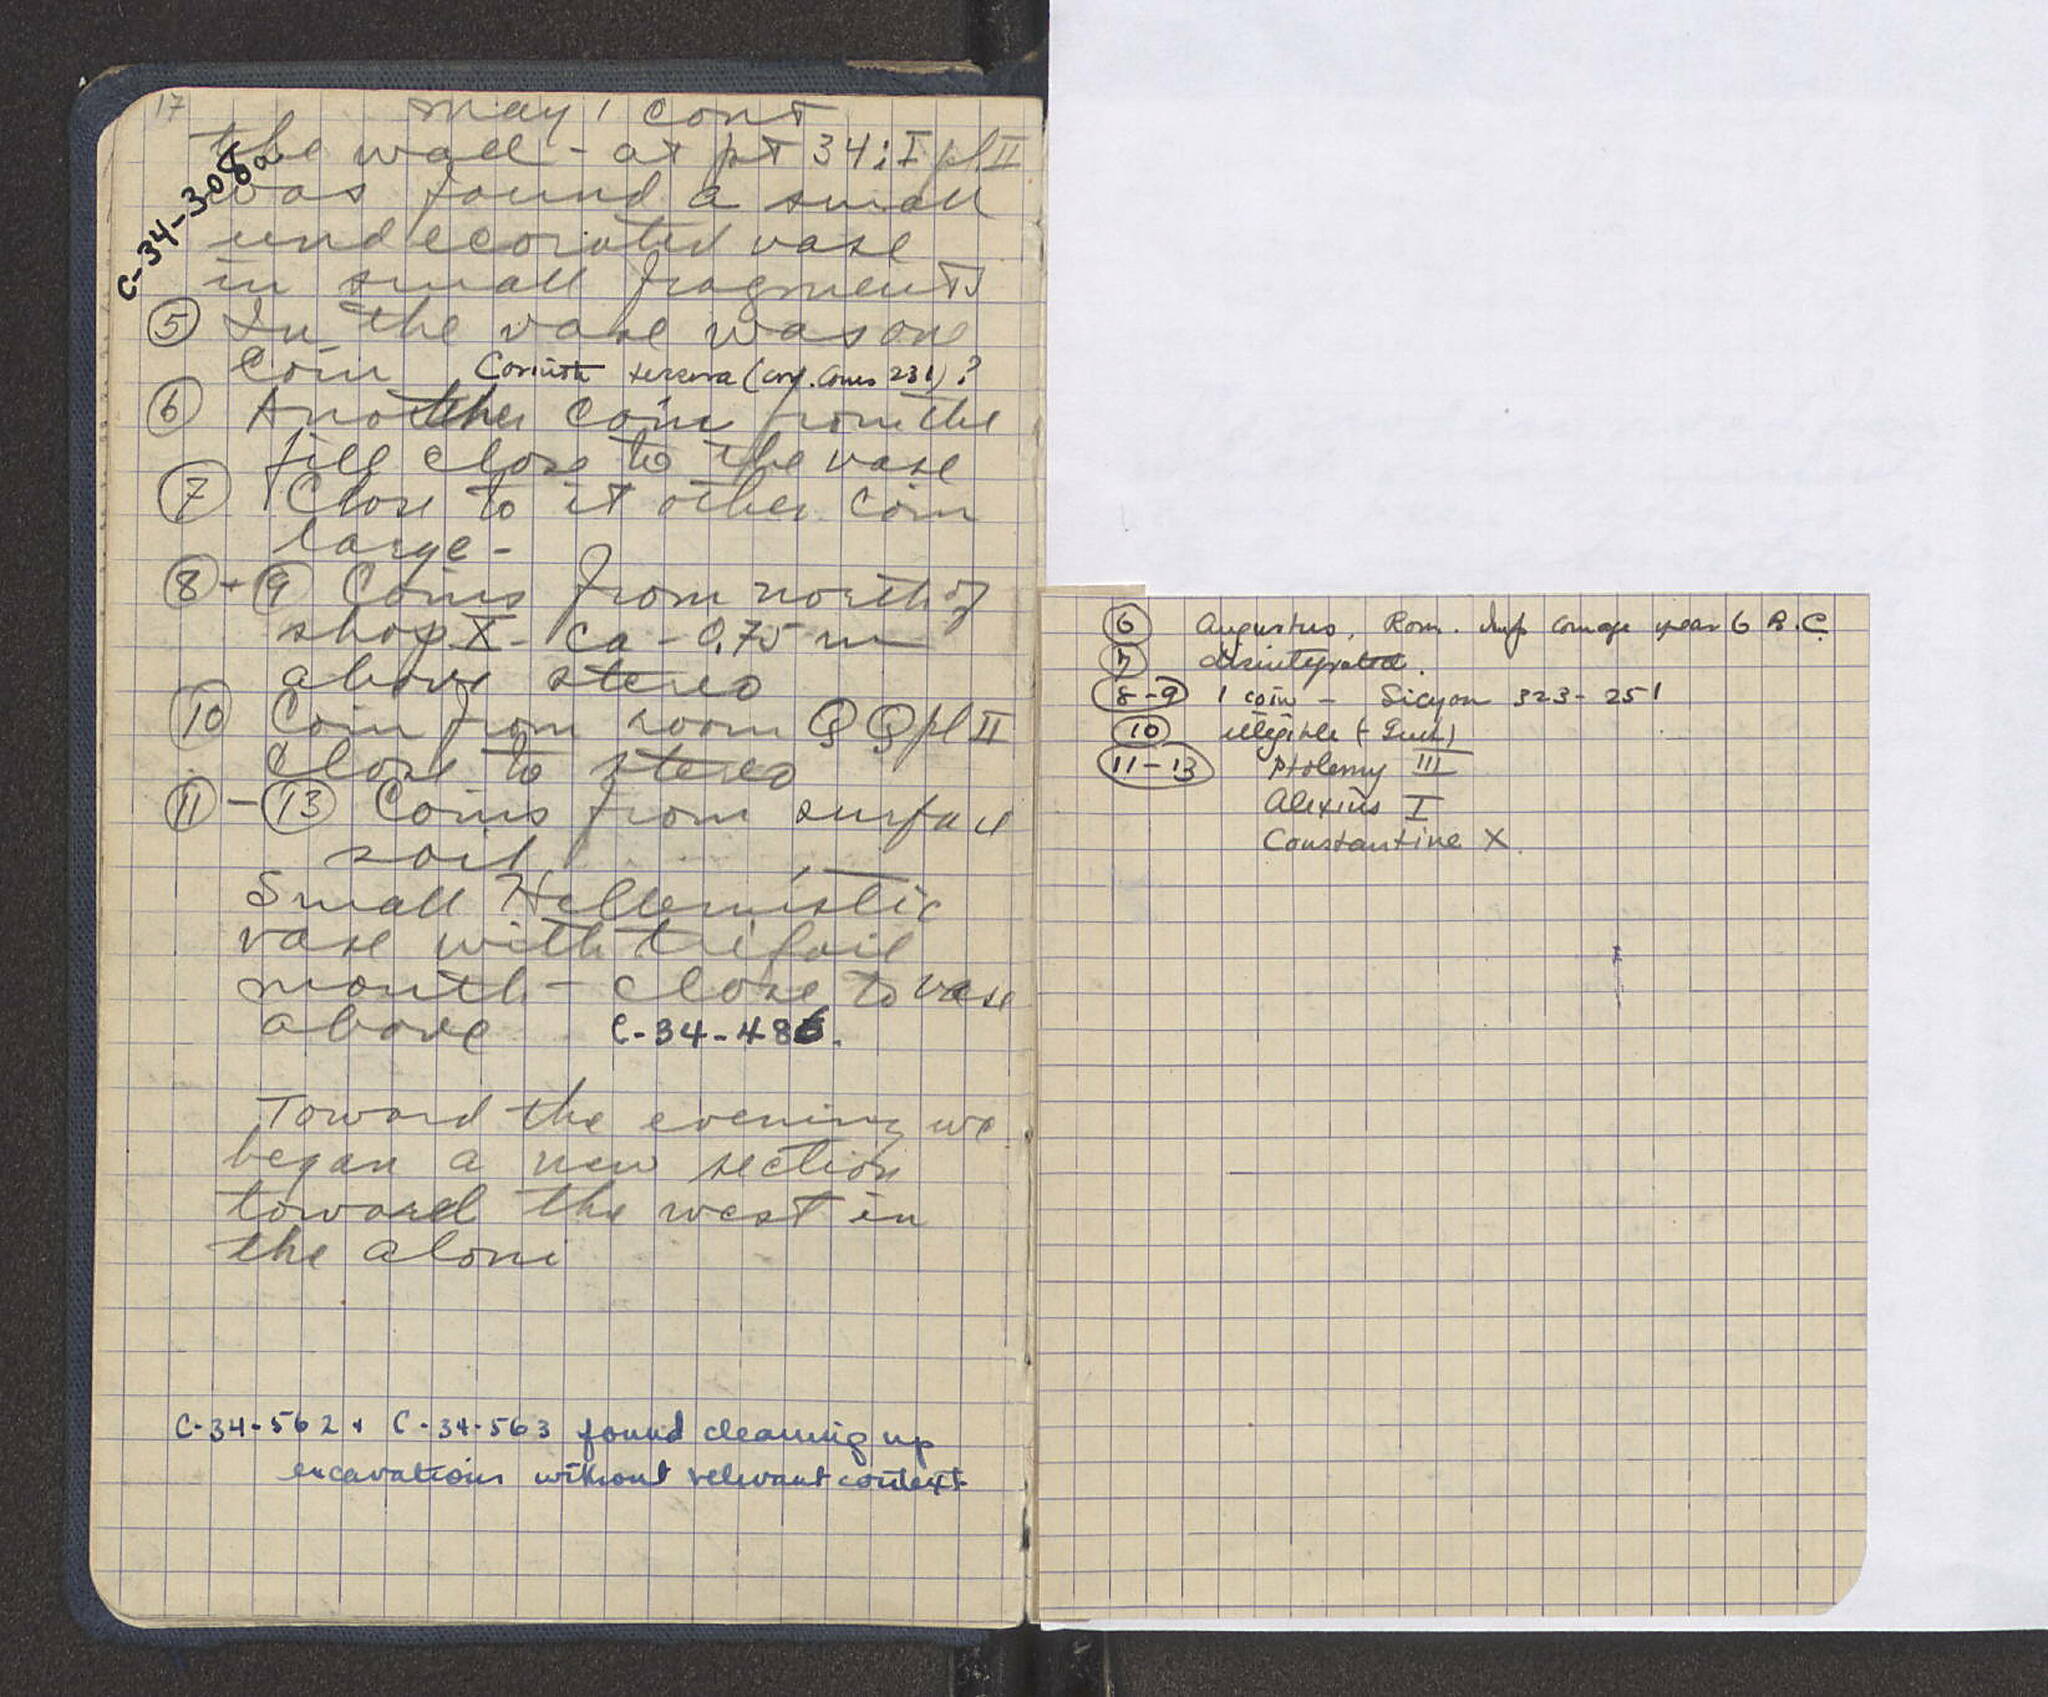 17
May 1 cont
the wall - at pt 34; I pl II
C-34-308a
was found a small
undecorated vase
in small fragments
(5) In the vase was one
coin Corinth tessera (Cor. Coins 231)?
(6) Another coin from the
fill close to the vase
(7) Close to it other coin
large -
(8) + (9) Coins from north of
shop X - ca - 0.75 m
above stereo
(10) Coin from room QQ pl II
close to stereo
(11) - (13) Coins from surface
soil
Small Hellenistic
vase with trifoil
mouth - close to vase
above C-34-486.
Toward the evening we
began a new section
toward the west in
the aloni
C-34-562 + C-34-563 found cleaning up
excavations without relevant context
(6) Augustus, Rom. Imp coinage year 6 B.C.
(7) disintegrated.
(8-9) 1 coin - Sicyon 323-251
(10) illegible
(11-13) Ptolemy III
Alexius I
Constantine X.